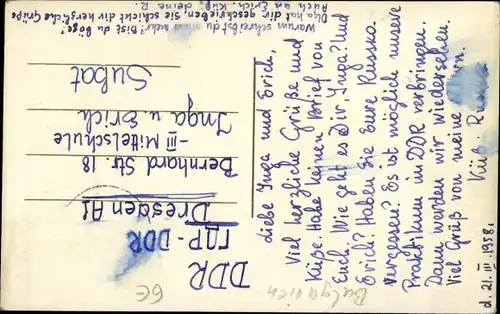 Warum schreibst du nicht mehr? Bist du böse?
Olga hat dir geschrieben. Sie schickt dir herzliche Grüße
Auch an Erich. Küß. deine R.
liebe Inga und Erich,
Viel herzliche Grüße und
Küße. Habe keinen Brief von
Euch. Wie geht es Dir, Inga? Und
Erich? Haben Sie Eure Russka
vergessen? Es ist möglich unsere
Praktikum in DDR verbringen.
Dann werden wir wiedersehen.
Viel Grüß von meine
Küß
d. 21. III. 1958.
Subat
Inga u. Erich
-III Mittelschule
Bernhard Str. 18
Dresden A1
ГДР-DDR
DDR
6E
Bulgarien